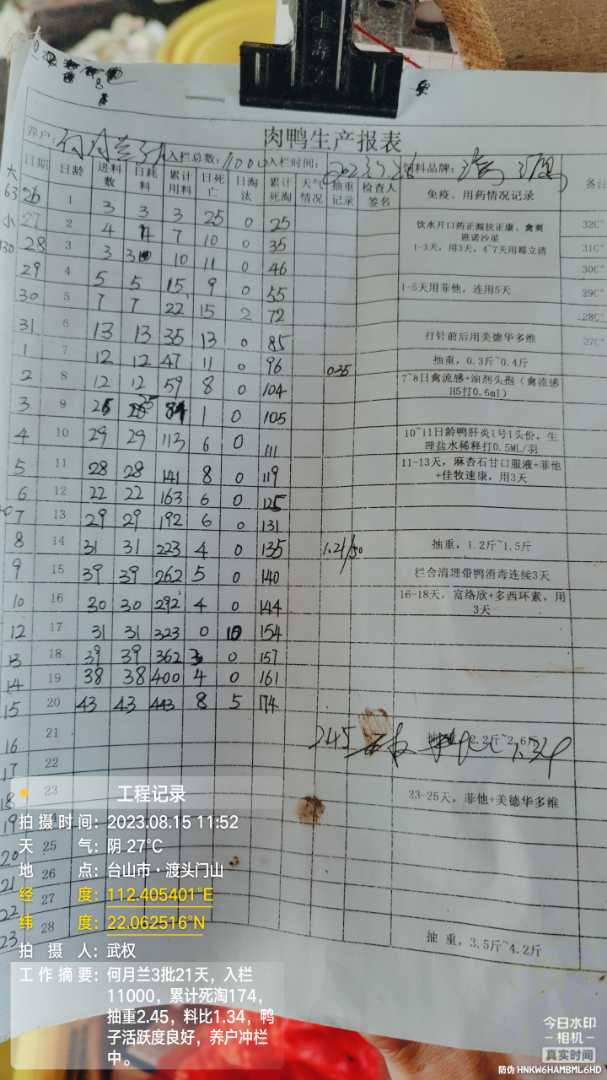 肉鸭生产报表
养户: 何月兰3批 入栏总数: 11000 入栏时间: 饲料品牌:
日期 日龄 进料数 日耗料 累计用料 日死亡 日淘汰 累计死淘 天气情况 抽重记录 检查人签名 免疫、用药情况记录 备注
26 1 3 3 3 25 0 25 饮水开口药正颠扶正康、禽奥 32C°
27 2 4 4 7 10 0 35 1-3天，用3天，4~7天用霉立清 31C°
28 3 3 3 10 11 0 46 30C°
29 4 5 5 15 9 0 55 1-5天用菲他，连用5天 29C°
30 5 7 7 22 15 2 72 28C°
31 6 13 13 35 13 0 85 打针前后用美德华多维 27C°
1 7 12 12 47 11 0 96 0.35 抽重，0.3斤~0.4斤
2 8 12 12 59 8 0 104 7~8日禽流感+油剂头孢（禽流感H5打0.6ml）
3 9 25 84 1 0 105
4 10 29 29 113 6 0 111 10~11日龄鸭肝炎1号1头份，生理盐水稀释打0.5ML/羽
5 11 28 28 141 8 0 119 11-13天，麻杏石甘口服液+菲他+佳牧速康，用3天
6 12 22 22 163 6 0 125
7 13 29 29 192 6 0 131
8 14 31 31 223 4 0 135 1.21/50 抽重，1.2斤~1.5斤
9 15 39 39 262 5 0 140 栏舍清理带鸭消毒连续3天
10 16 30 30 292 4 0 144 16-18天，富络欣+多西环素，用3天
12 17 31 31 323 0 10 154
13 18 39 39 362 3 0 157
14 19 38 38 400 4 0 161
15 20 43 43 443 8 5 174
16 21 2.45 武权 1.34 2.2斤~2.6斤
17 22
18 23 23-25天，菲他+美德华多维
19
20 25
21 26
22 27
23 28 抽重，3.5斤~4.2斤
工程记录
拍摄时间: 2023.08.15 11:52
天气: 阴 27℃
地点: 台山市·渡头门山
经度: 112.405401°E
纬度: 22.062516°N
拍摄人: 武权
工作摘要: 何月兰3批21天，入栏
11000，累计死淘174，
抽重2.45，料比1.34，鸭
子活跃度良好，养户冲栏
中。
今日水印
-相机-
真实时间
防伪 HNKW6HAMBML6HD